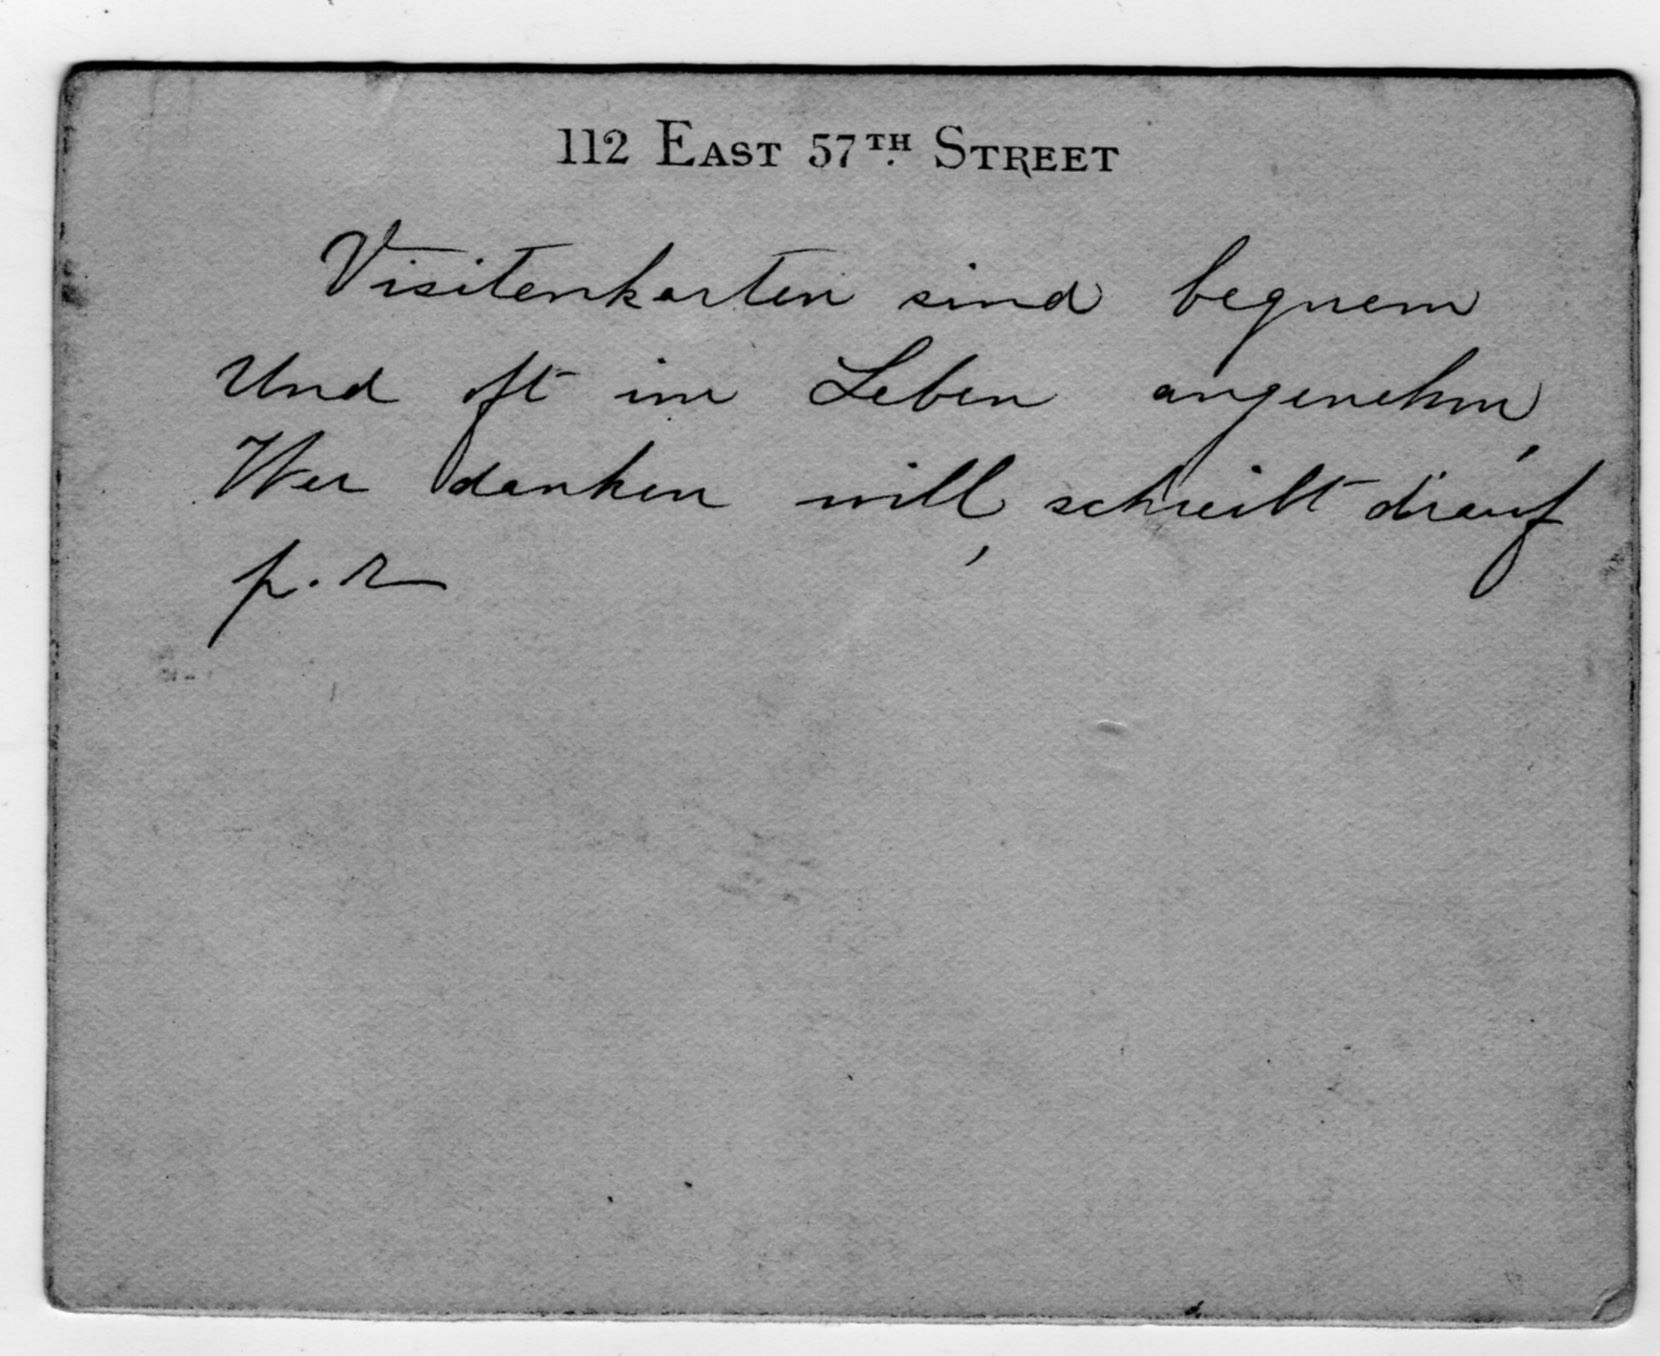 112 EAST 57TH. STREET
Visitenkarten sind bequem
Und oft im Leben angenehm,
Wer danken will, schreibt drauf
p. r